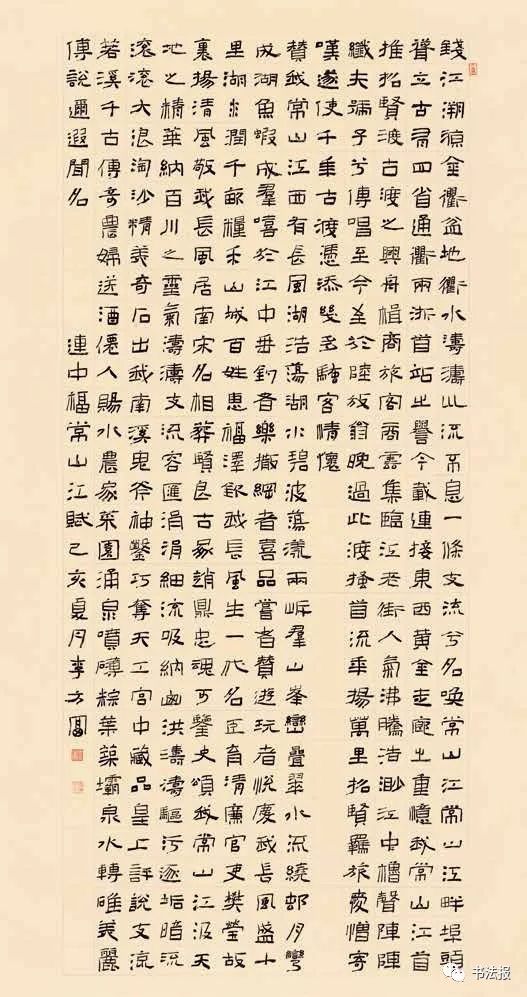 錢江溯源金衢盆地衢水濤濤北流不息一條支流兮名喚常山江常山江畔埠頭
聳立古為四省通衢兩浙首站之譽今載連接東西黃金走廊之重憶哉常山江首
推招賢渡古渡之興舟楫商旅客商雲集臨江老街人氣沸騰浩渺江中櫓聲陣陣
纖夫號子兮傳唱至今至於陸放翁晚過此渡搔首流年揚萬里招賢羈旅愛憎寄
嘆遂使千年古渡憑添幾多騷客情懷
贊哉常山江西有長風湖浩蕩湖水碧波蕩漾兩岸羣山峯巒疊翠水流繞邨月灣
成湖魚蝦成羣嘻於江中垂釣者樂撒網者喜品嘗者贊遊玩者悅慶哉長風盛十
里湖水潤千畝糧禾山城百姓惠福澤欽哉長風生一代名臣育清廉官吏樊瑩故
裏揚清風敬哉長風居南宋名相葬賢良古冢趙鼎忠魂可鑒史頌哉常山江汲天
地之精華納百川之靈氣濤濤支流容匯涓涓細流吸納幽洪濤驅污逐垢暗流
滾滾大浪淘沙精美奇石出哉南溪鬼斧神鑿巧奪天工宮中藏品皇上評說支流
若溪千古傳奇農婦送酒僊人賜水農家菜園涌泉噴礴粽葉築壩泉水轉碓美麗
傳說邇遐聞名 連中福常山江賦己亥夏月李方圓
书法报